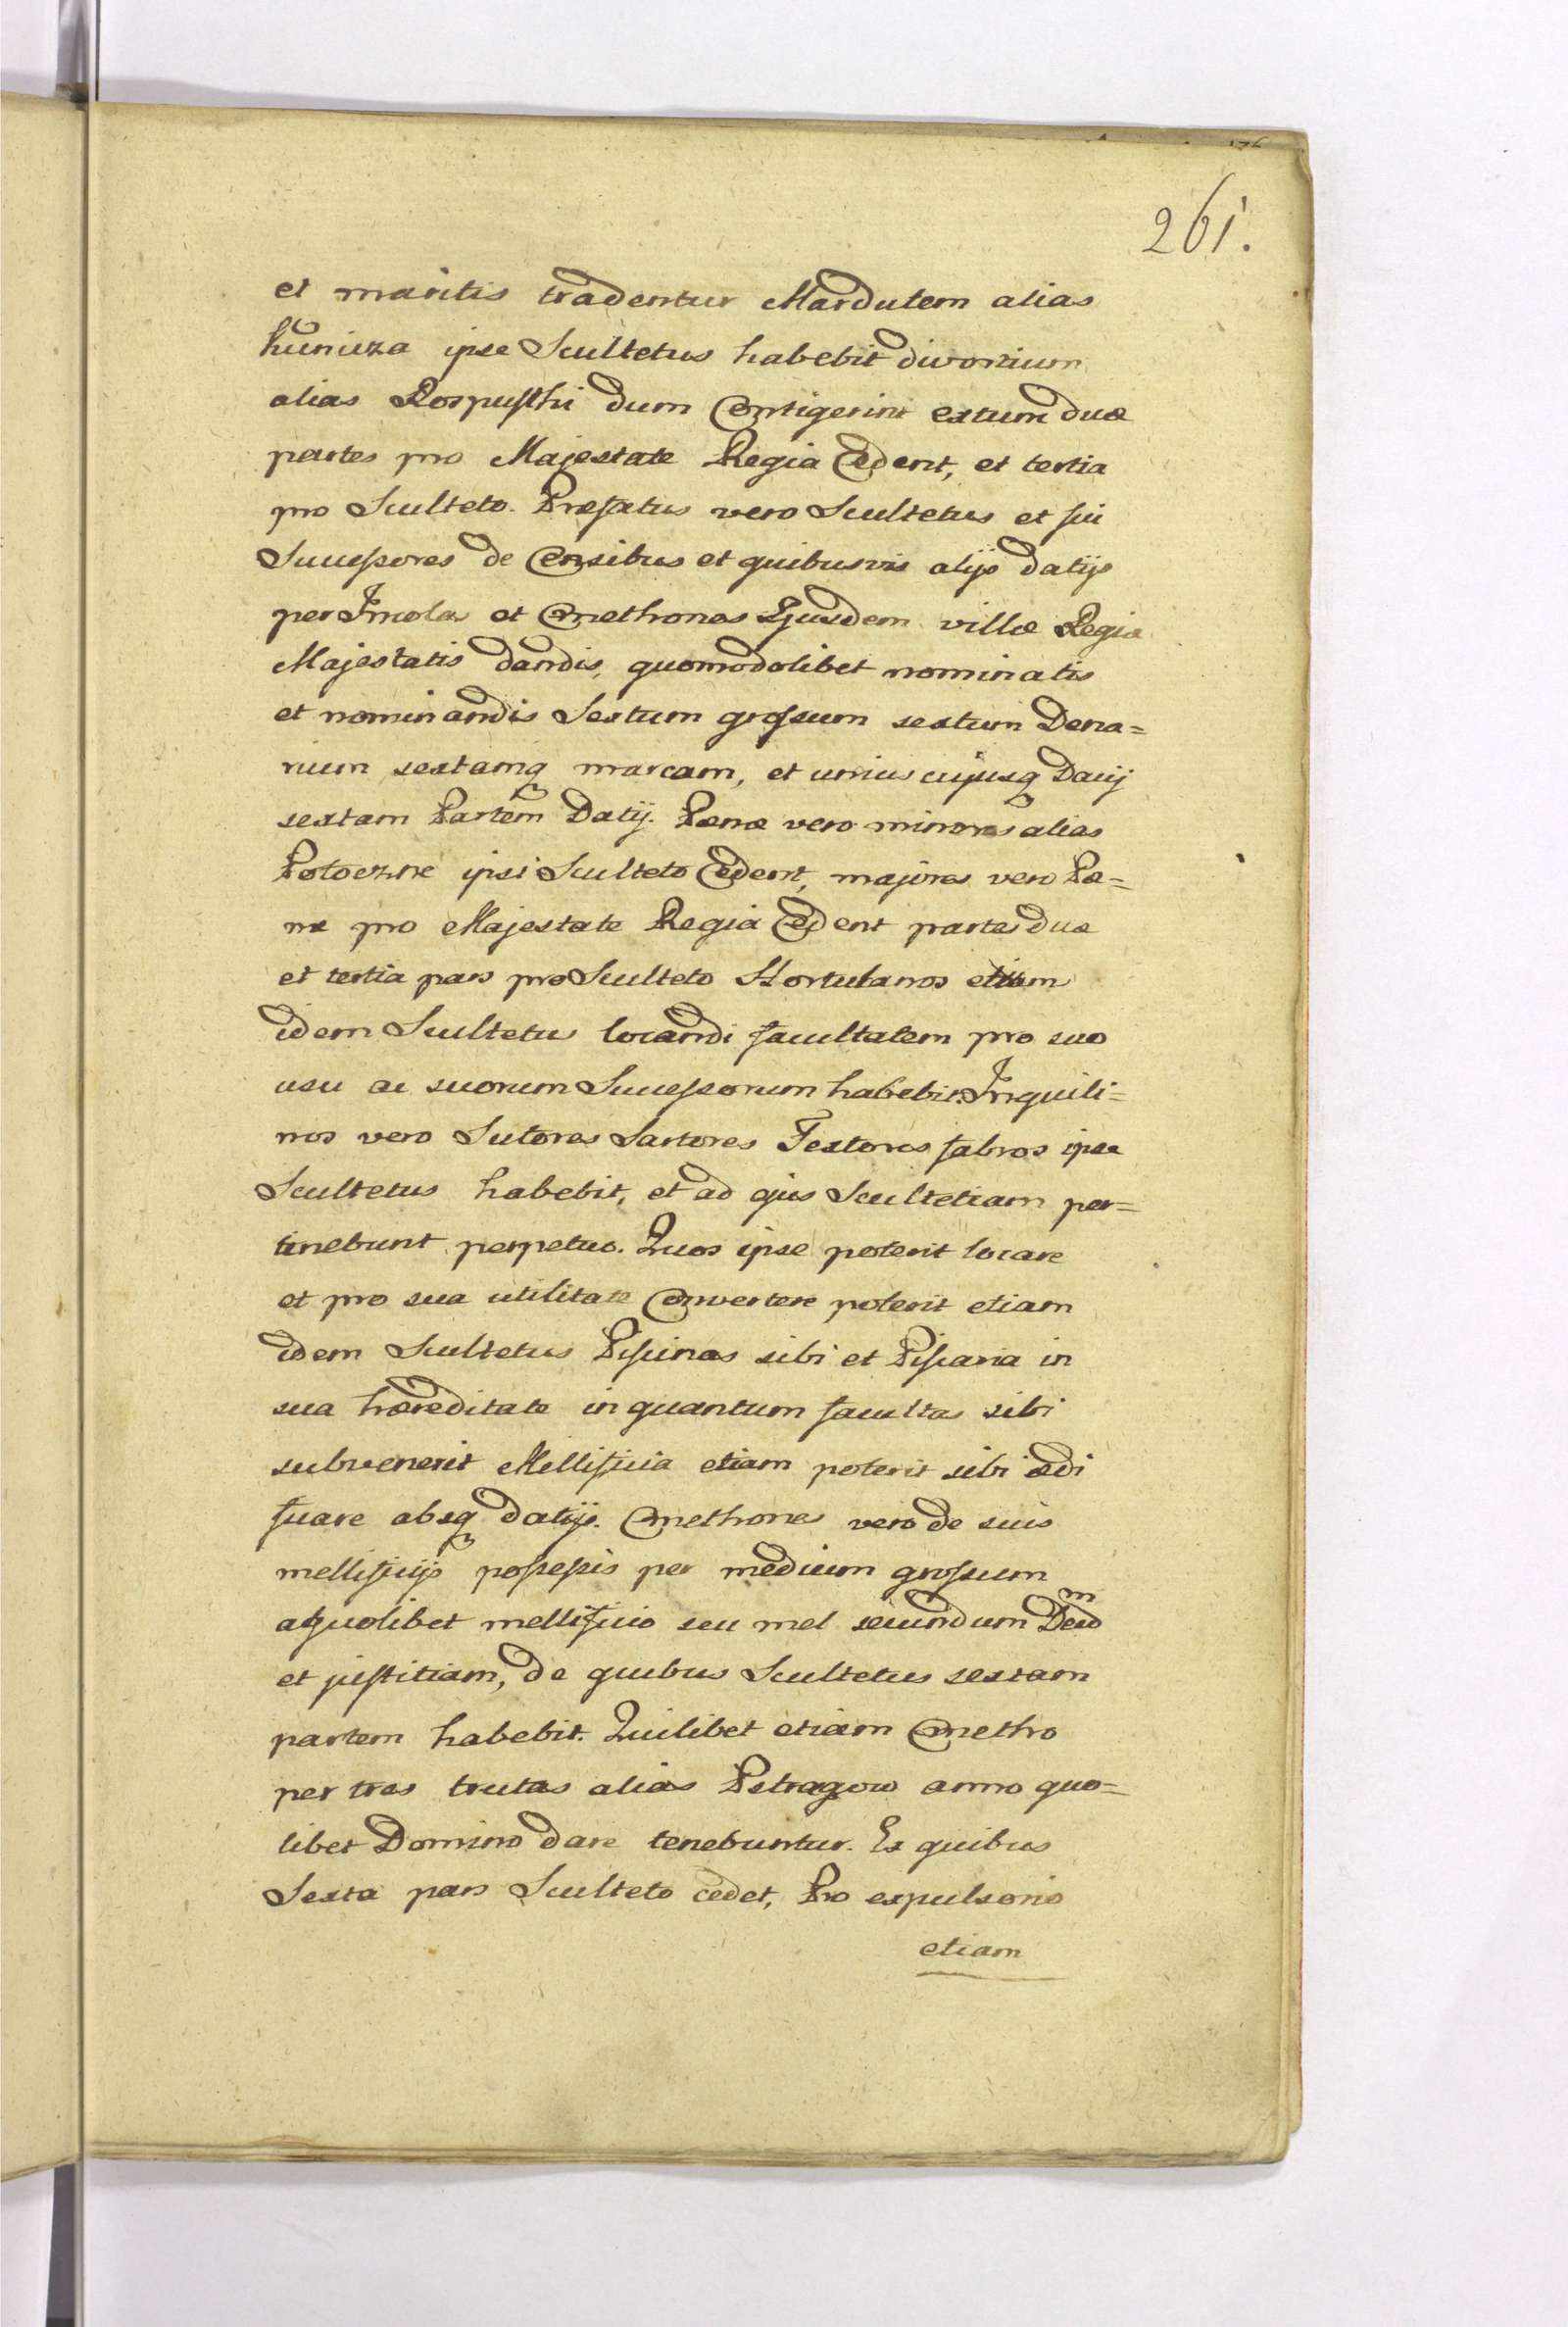 261.
et maritis tradentur Mardutem alias
kunicza ipse Scultetus habebit divortium
alias Rospusthi dum Contigerint extum duæ
partes pro Majestate Regia Cedent, et tertia
pro Sculteto. Præfatus vero Scultetus et sui
Successores de Censibus et quibusvis alijs datijs
per Incolas et Cmethones Ejusdem villæ Regiæ
Majestatis dandis, quomodolibet nominatis
et nominandis Sextum grossum sextum Dena=
rium sextamq marcam, et unius cujusq Dacij
sextam Partem Datij. Pænæ vero minores alias
Potoczne ipsi Sculteto Cedent, majores vero Pæ=
næ pro Majestate Regia Cedent partes duæ
et tertia pars pro Sculteto Hortulanos etiam
idem Scultetus locandi facultatem pro suo
usu ac suorum Successorum habebit. Inquili=
nos vero Sutores Sartores Textores fabros ipse
Scultetus habebit, et ad ejus Scultetiam per=
tinebunt perpetuo. Quos ipse poterit locare
et pro sua utilitate Convertere poterit etiam
idem Scultetus Piscinas sibi et Piscaria in
sua hæreditate in quantum facultas sibi
subvenerit Mellificia etiam poterit sibi ædi
ficare absq datijs. Cmethones vero de suis
mellificijs possessis per medium grossum
a quolibet mellificio seu mel secundum Deum
et justitiam, de quibus Scultetus sextam
partem habebit. Quilibet etiam Cmetho
per tres trutas alias Pstragow anno quo=
libet Domino dare tenebuntur. Ex quibus
Sexta pars Sculteto cedet, Pro expulsorio
etiam